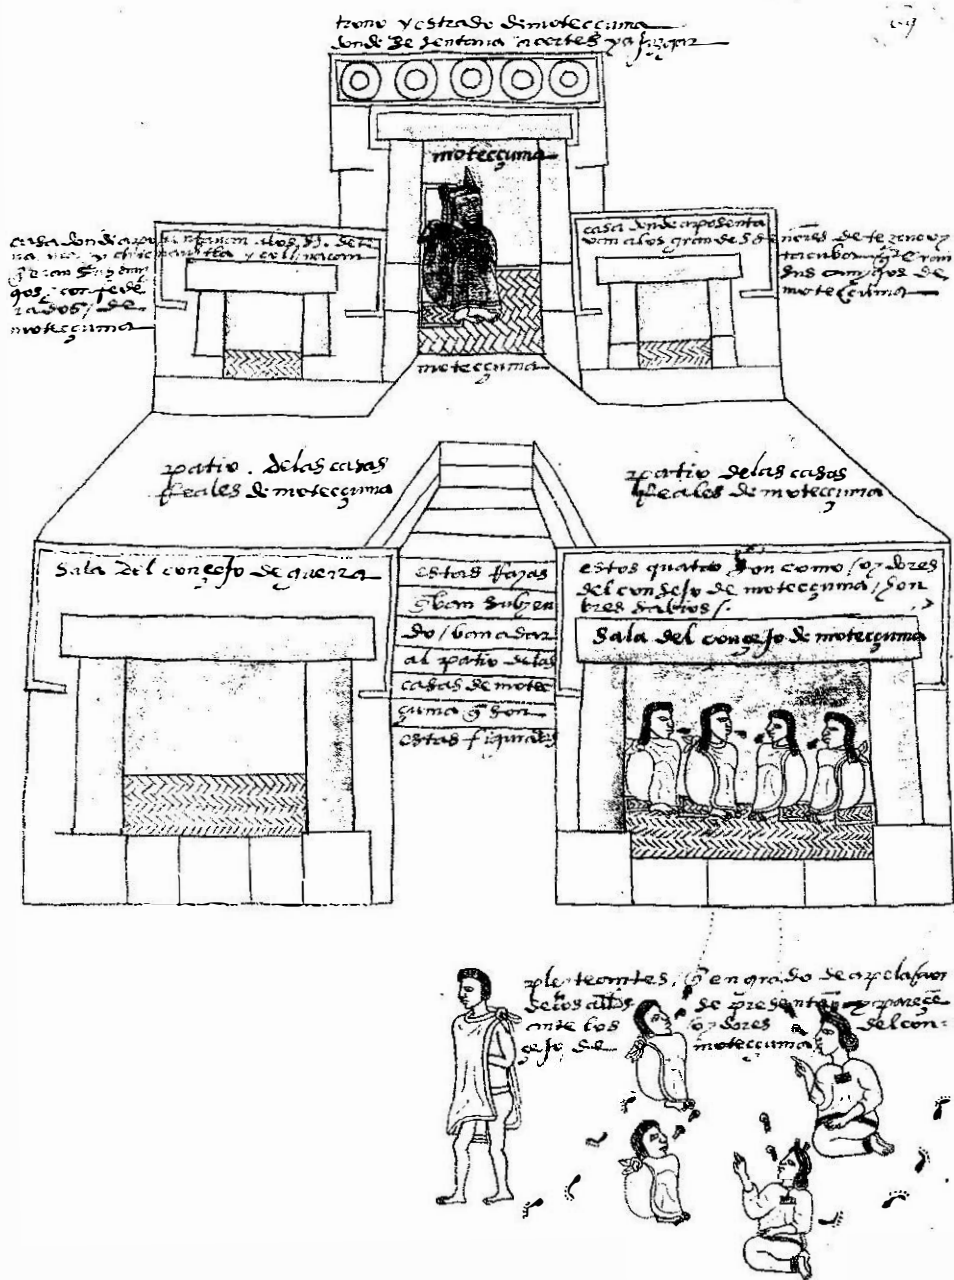 69
trono y estrado de motecçuma
donde se sentava a cortes y a juzgar
motecçuma
casa donde aposentavan a los s.s de te
na yuca y chiconauhtla y colhuacan
q̃ eran sus ami
gos / confede
rados / de
motecçuma
casa donde aposenta
van a los grandes señores de tezcuco y
tacuba q̃ eran
sus amigos de
motecçuma
motecçuma
patio . delas casas
Reales de motecçuma
patio delas casas
Reales de motecçuma
Sala del conçejo de guerra
estas Rayas
q̃ van subyen
do / van a dar
al patio de las
casas de motec
çuma q̃ son
estas figuradas
estos quatro son como / oydores
del consejo de motecçuma / hon
bres sabios /.
Sala del conçejo de motecçuma
pleyteantes / q̃ en grado de apelaçion
de los allds se presentan y pareçẽ
ante los oydores del con-
çejo de motecçuma